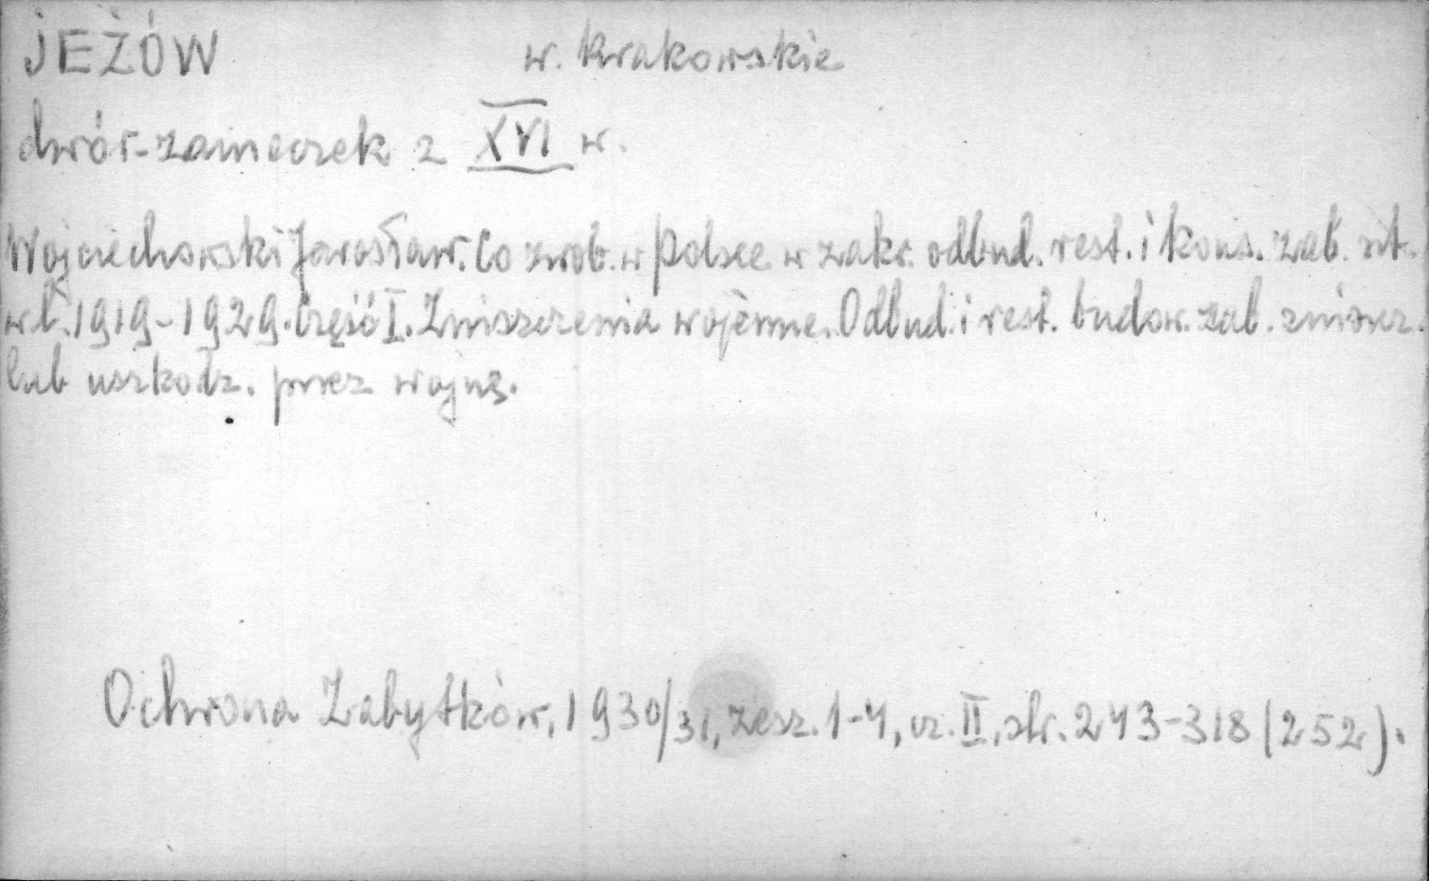 JEŻÓW w. krakowskie
dwór-zameczek z XVI w.
Wojciechowski Jarosław. Co zrob. w Polsce w zakr. odbud. rest. i kons. zab. szt.
w l. 1919-1929. Część I. Zniszczenia wojenne. Odbud. i rest. budow. zab. zniszcz.
lub uszkodz. przez wojnę.
Ochrona Zabytków, 1930/31, zesz. 1-4, cz. II, str. 243-318 (252).